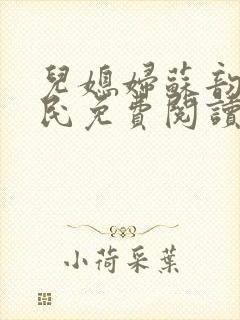 兒媳婦蘇韵
民免費閱讀
小荷采葉